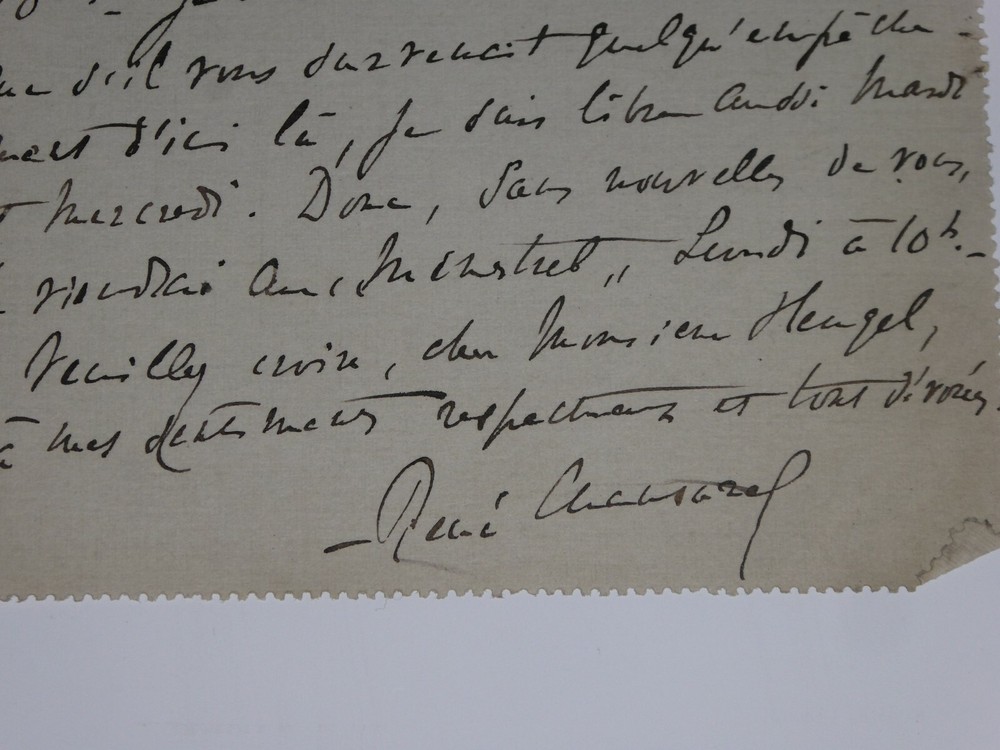 s'il vous survenait quelqu'empêche-
ment d'ici là, je suis libre aussi Mardi
et Mercredi. Donc, sans nouvelles de vous,
viendrai au "Ménestrel" Lundi à 10h.-
Veuillez croire, cher Monsieur Heugel,
à mes sentiments respectueux et tout dévoués.
- René Chansarel